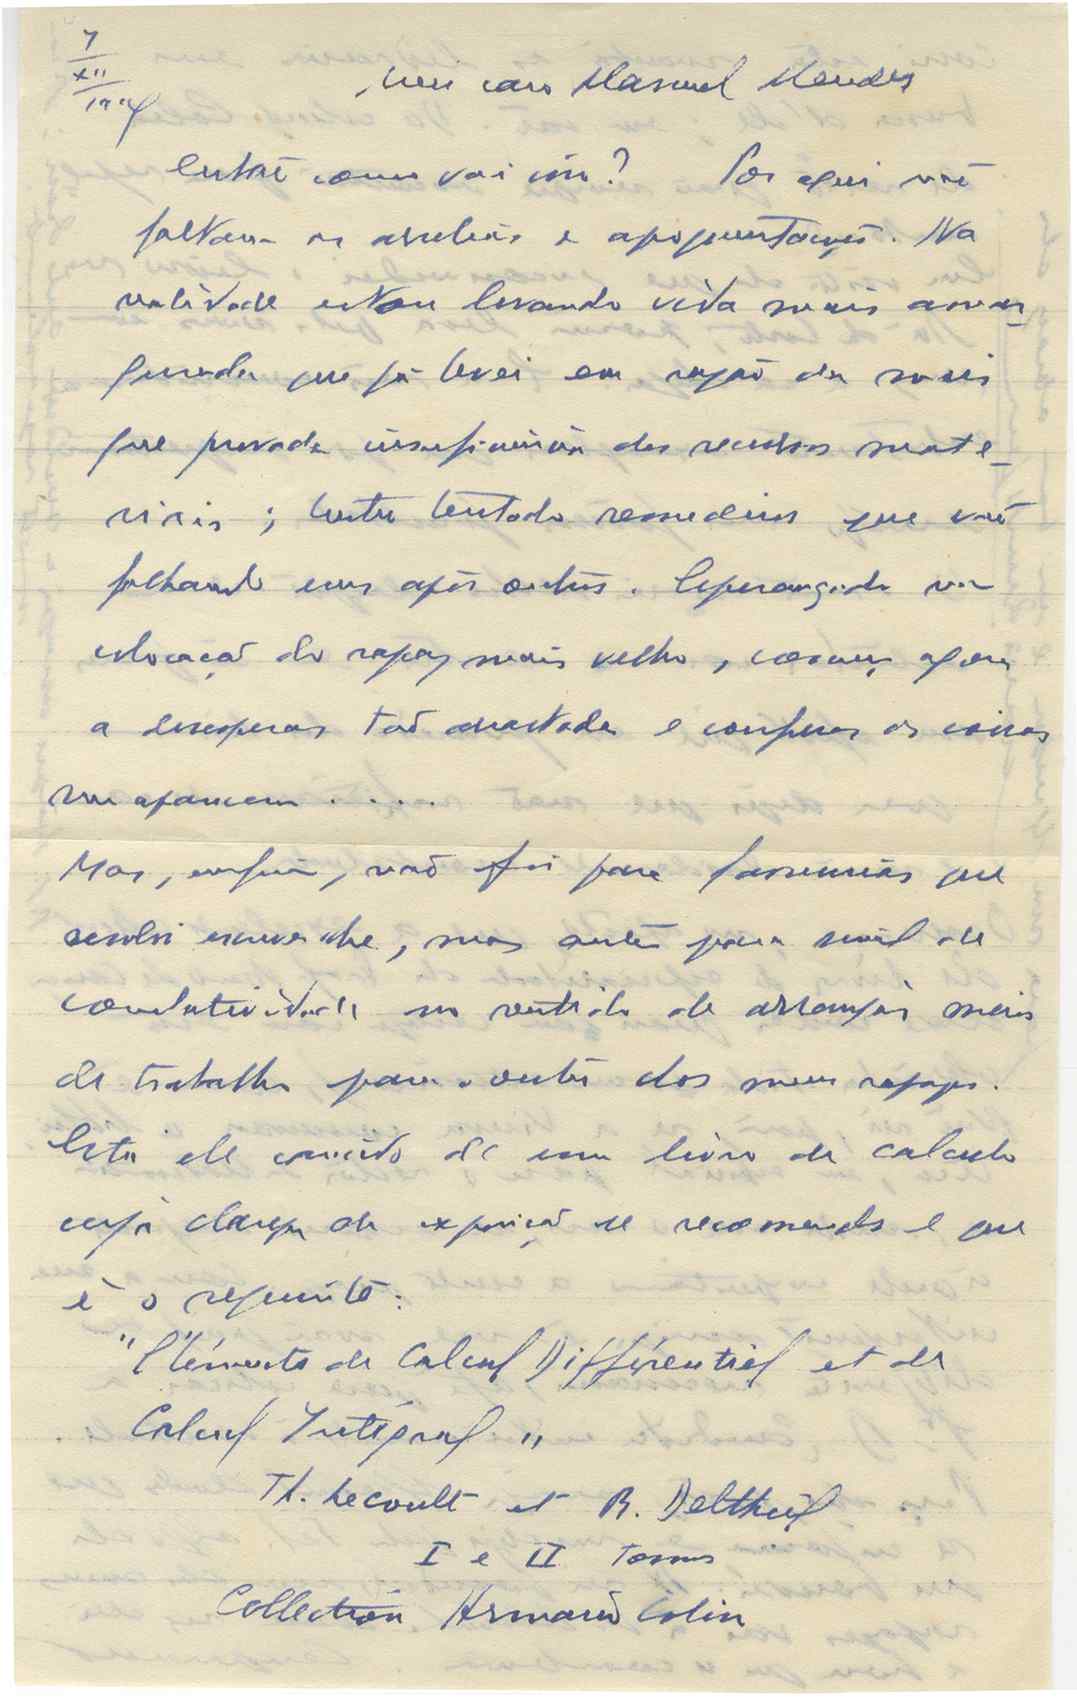 7
XII
Meu caro Manuel Mendes
Então como vai isso? Por aqui não
faltam as arrelias e apoquentações. Na
realidade estou levando vida mais amar-
gurada que já levei em razão da mais
que provada insuficiencia dos recursos mate-
riais; tento tentado remedios que vão
falhando uns após outros. Esperançado na
colocação do rapaz mais velho, começo agora
a desesperar tão arrastadas e confusas as coisas
me aparecem .....
Mas, enfim, não foi para lamurias que
resolvi escrever-lhe, mas antes para sinal de
combatividade no sentido de arranjar mais
de trabalho para o outro dos meus rapazes.
Está ele carecido de um livro de calculo
cuja clareza de exposição se recomenda e que
é o seguinte:
"Eléments de Calcul Différentiel et de
Calcul Intégral"
Th. Lecoult et R. Deltheil
I e II Tomos
Collection Armand Colin